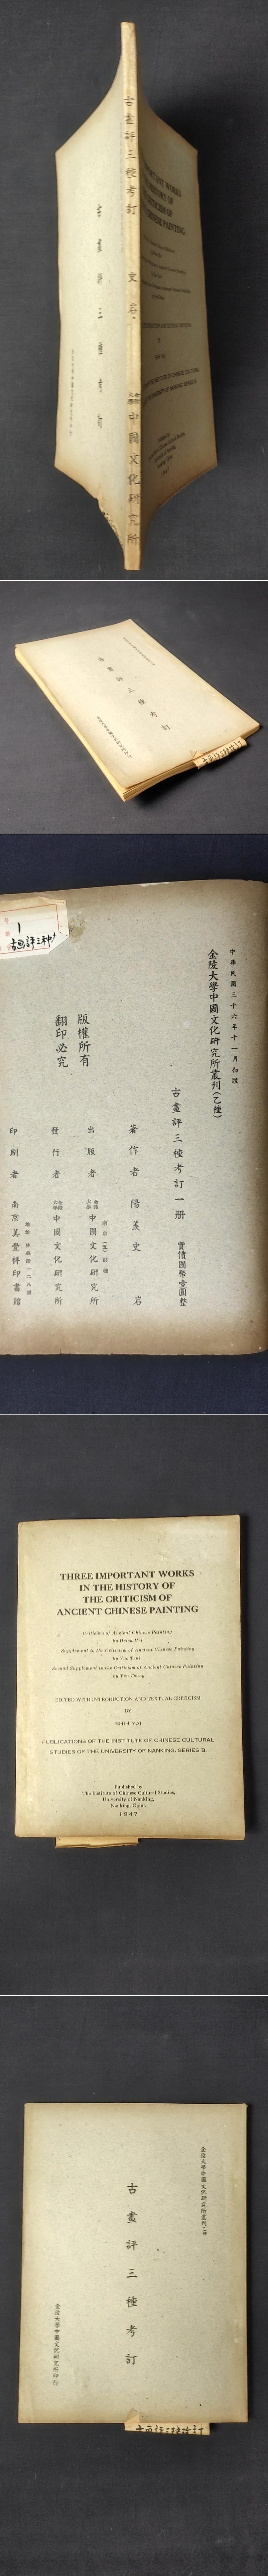 古畫評三種考訂 史岩
金陵大學中國文化研究所
古畫評三種考訂
古畫評三種考訂
古画評三種改訂
1
古画評三种
中華民國三十六年十一月初版
金陵大學中國文化研究所叢刊(乙種)
古畫評三種考訂一册 實價國幣壹圓整
著作者 陽羨史岩
出版者 金陵大學中國文化研究所
發行者 金陵大學中國文化研究所
印刷者 南京美豐祥印書館
版權所有
翻印必究
THREE IMPORTANT WORKS
IN THE HISTORY OF
THE CRITICISM OF
ANCIENT CHINESE PAINTING
Criticism of Ancient Chinese Painting
by Hsieh Ho
Supplement to the Criticism of Ancient Chinese Painting
by Yao Tsui
Second Supplement to the Criticism of Ancient Chinese Painting
by Yen Tsung
EDITED WITH INTRODUCTION AND TEXTUAL CRITICISM
BY
SHIH YAI
PUBLICATIONS OF THE INSTITUTE OF CHINESE CULTURAL
STUDIES OF THE UNIVERSITY OF NANKING. SERIES B.
Published by
The Institute of Chinese Cultural Studies,
University of Nanking,
Nanking, China
1947
金陵大學中國文化研究所叢刊乙種
古畫評三種考訂
金陵大學中國文化研究所印行
古画評三種改訂